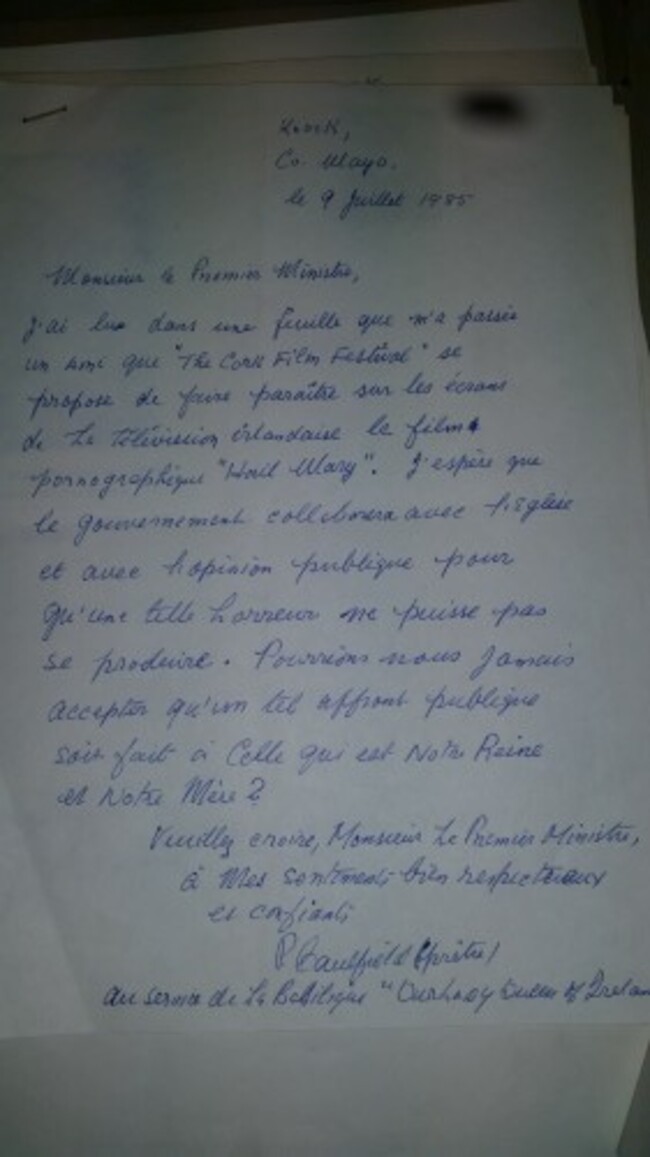 Knock,
Co. Mayo.
le 9 Juillet 1985
Monsieur le Premier Ministre,
J'ai lu dans une feuille que m'a passée
un ami que "The Cork Film Festival" se
propose de faire paraître sur les écrans
de la télévision irlandaise le film
pornographique "Hail Mary". J'espère que
le gouvernement collaborera avec l'église
et avec l'opinion publique pour
qu'une telle horreur ne puisse pas
se produire. Pourrions nous jamais
accepter qu'un tel affront publique
soit fait à Celle qui est Notre Reine
et Notre Mère?
Veuillez croire, Monsieur Le Premier Ministre,
à Mes sentiments bien respectueux
et confiants
P Caulfield (prêtre)
au service de la Basilique "Our Lady Queen of Irelan